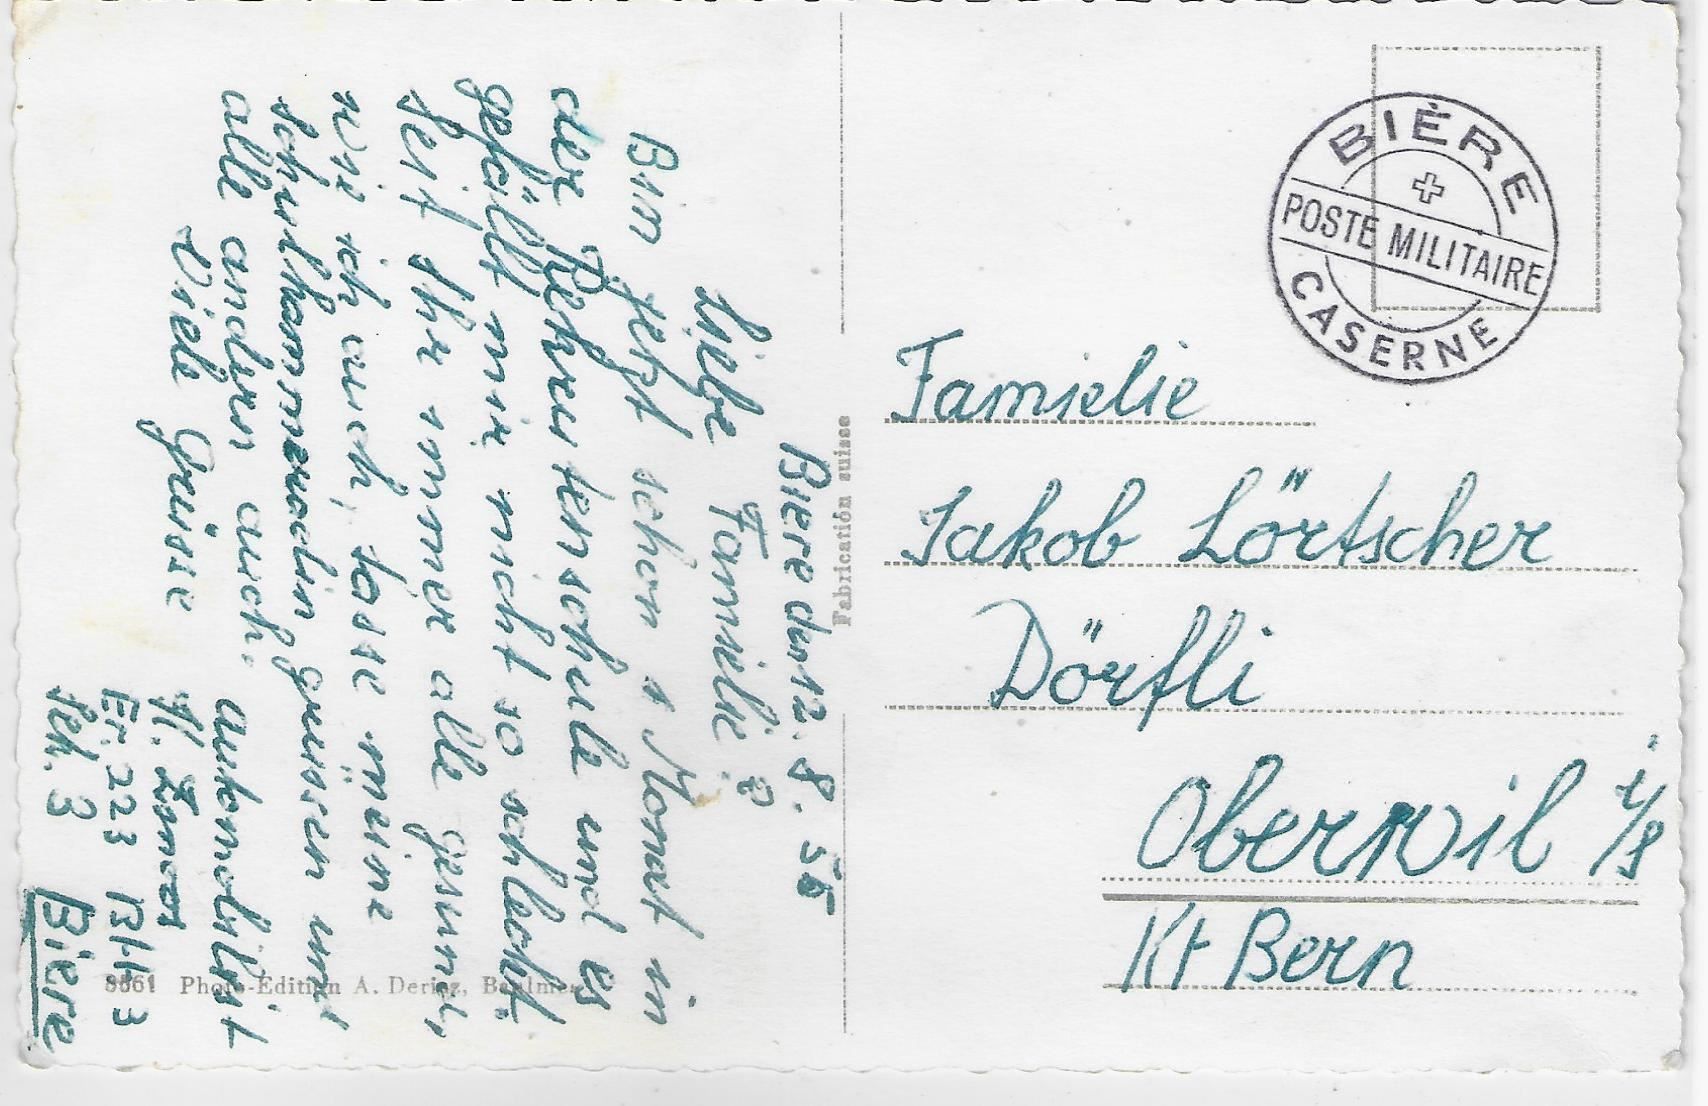 Biere den 12. 8. 55
Liebe Familie
Bin jetzt schon 1 Monat in
der Rekrutenschule und es
gefällt mir nicht so schlecht.
Seit Ihr immer alle gesund,
wie ich auch, lasse meine
Schulkammeradin grüssen und
alle andern auch.
Viele Grüsse
Rek. 3
Biere
BIÈRE
POSTE MILITAIRE
CASERNE
Familie
Jakob Lörtscher
Dörfli
Oberwil i/S
Kt Bern
Fabrication suisse
Photo-Edition A. Deriaz, Baulmes